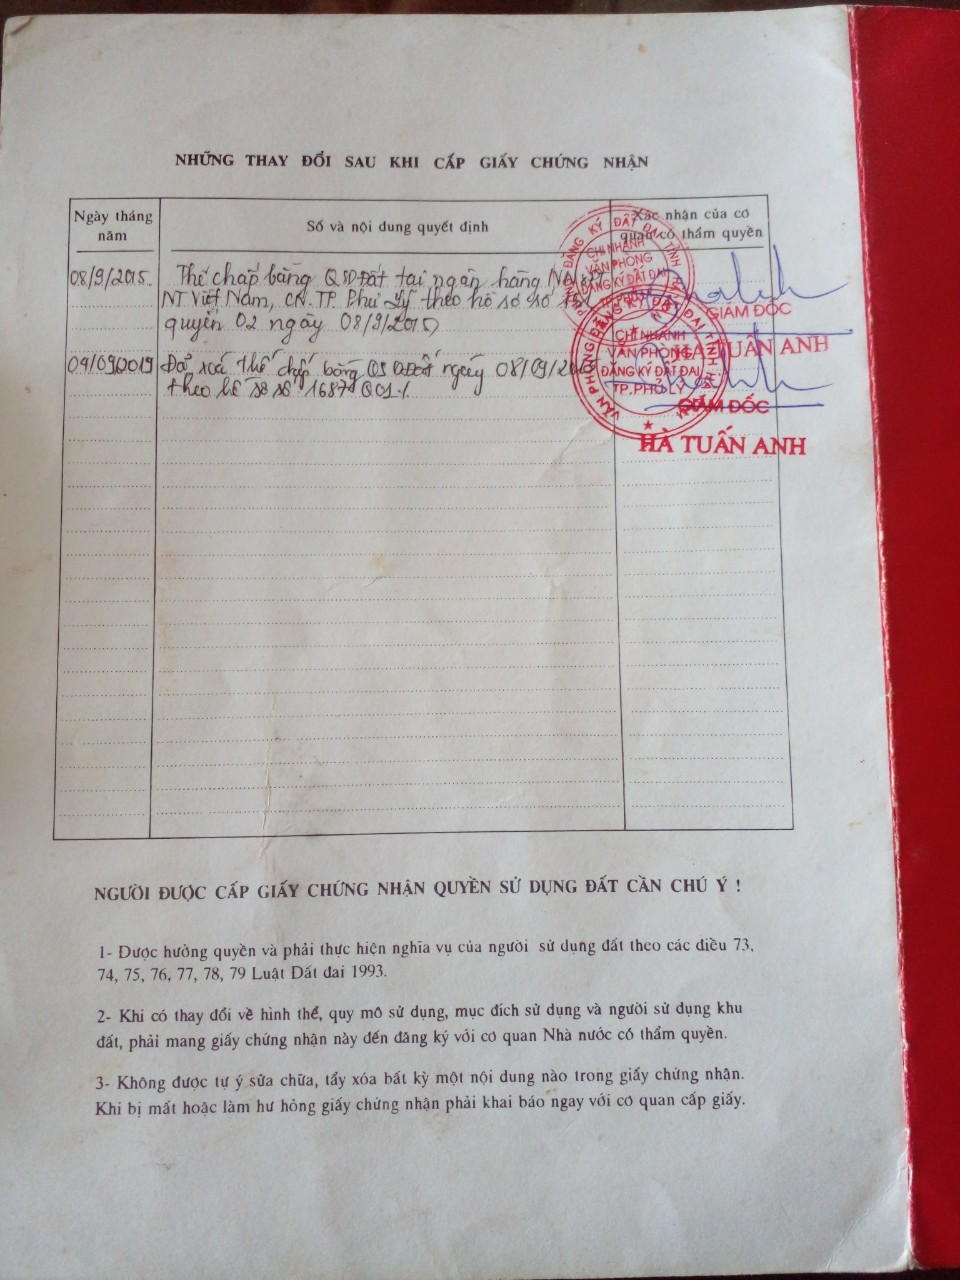 NHỮNG THAY ĐỔI SAU KHI CẤP GIẤY CHỨNG NHẬN
Ngày tháng năm
Số và nội dung quyết định
Xác nhận của cơ quan có thẩm quyền
08/9/2015.
Thế chấp bằng QSDĐất tại ngân hàng
NT Việt Nam, CN.TP. Phủ Lý theo hồ sơ số
quyển 02 ngày 08/9/2015
GIÁM ĐỐC
HÀ TUẤN ANH
09/09/2019
Đã xoá thế chấp bằng QSDĐất ngày 08/09/2015
theo hồ sơ số 1687 Q01
GIÁM ĐỐC
HÀ TUẤN ANH
CHI NHÁNH
VĂN PHÒNG
ĐĂNG KÝ ĐẤT ĐAI
TP.PHỦ LÝ
CHI NHÁNH
VĂN PHÒNG
ĐĂNG KÝ ĐẤT ĐAI
TP.PHỦ LÝ
NGƯỜI ĐƯỢC CẤP GIẤY CHỨNG NHẬN QUYỀN SỬ DỤNG ĐẤT CẦN CHÚ Ý !
1- Được hưởng quyền và phải thực hiện nghĩa vụ của người sử dụng đất theo các điều 73,
74, 75, 76, 77, 78, 79 Luật Đất đai 1993.
2- Khi có thay đổi về hình thể, quy mô sử dụng, mục đích sử dụng và người sử dụng khu
đất, phải mang giấy chứng nhận này đến đăng ký với cơ quan Nhà nước có thẩm quyền.
3- Không được tự ý sửa chữa, tẩy xóa bất kỳ một nội dung nào trong giấy chứng nhận.
Khi bị mất hoặc làm hư hỏng giấy chứng nhận phải khai báo ngay với cơ quan cấp giấy.